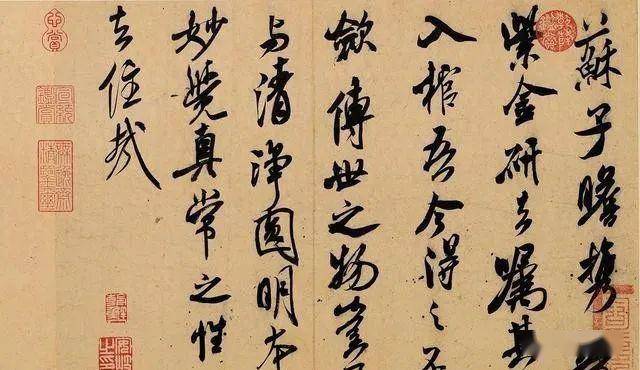 蘇子瞻携
紫金研去嘱其
入棺吾今得之不
歛傳世之物豈
与清淨圓明本
妙覺真常之性
去住哉